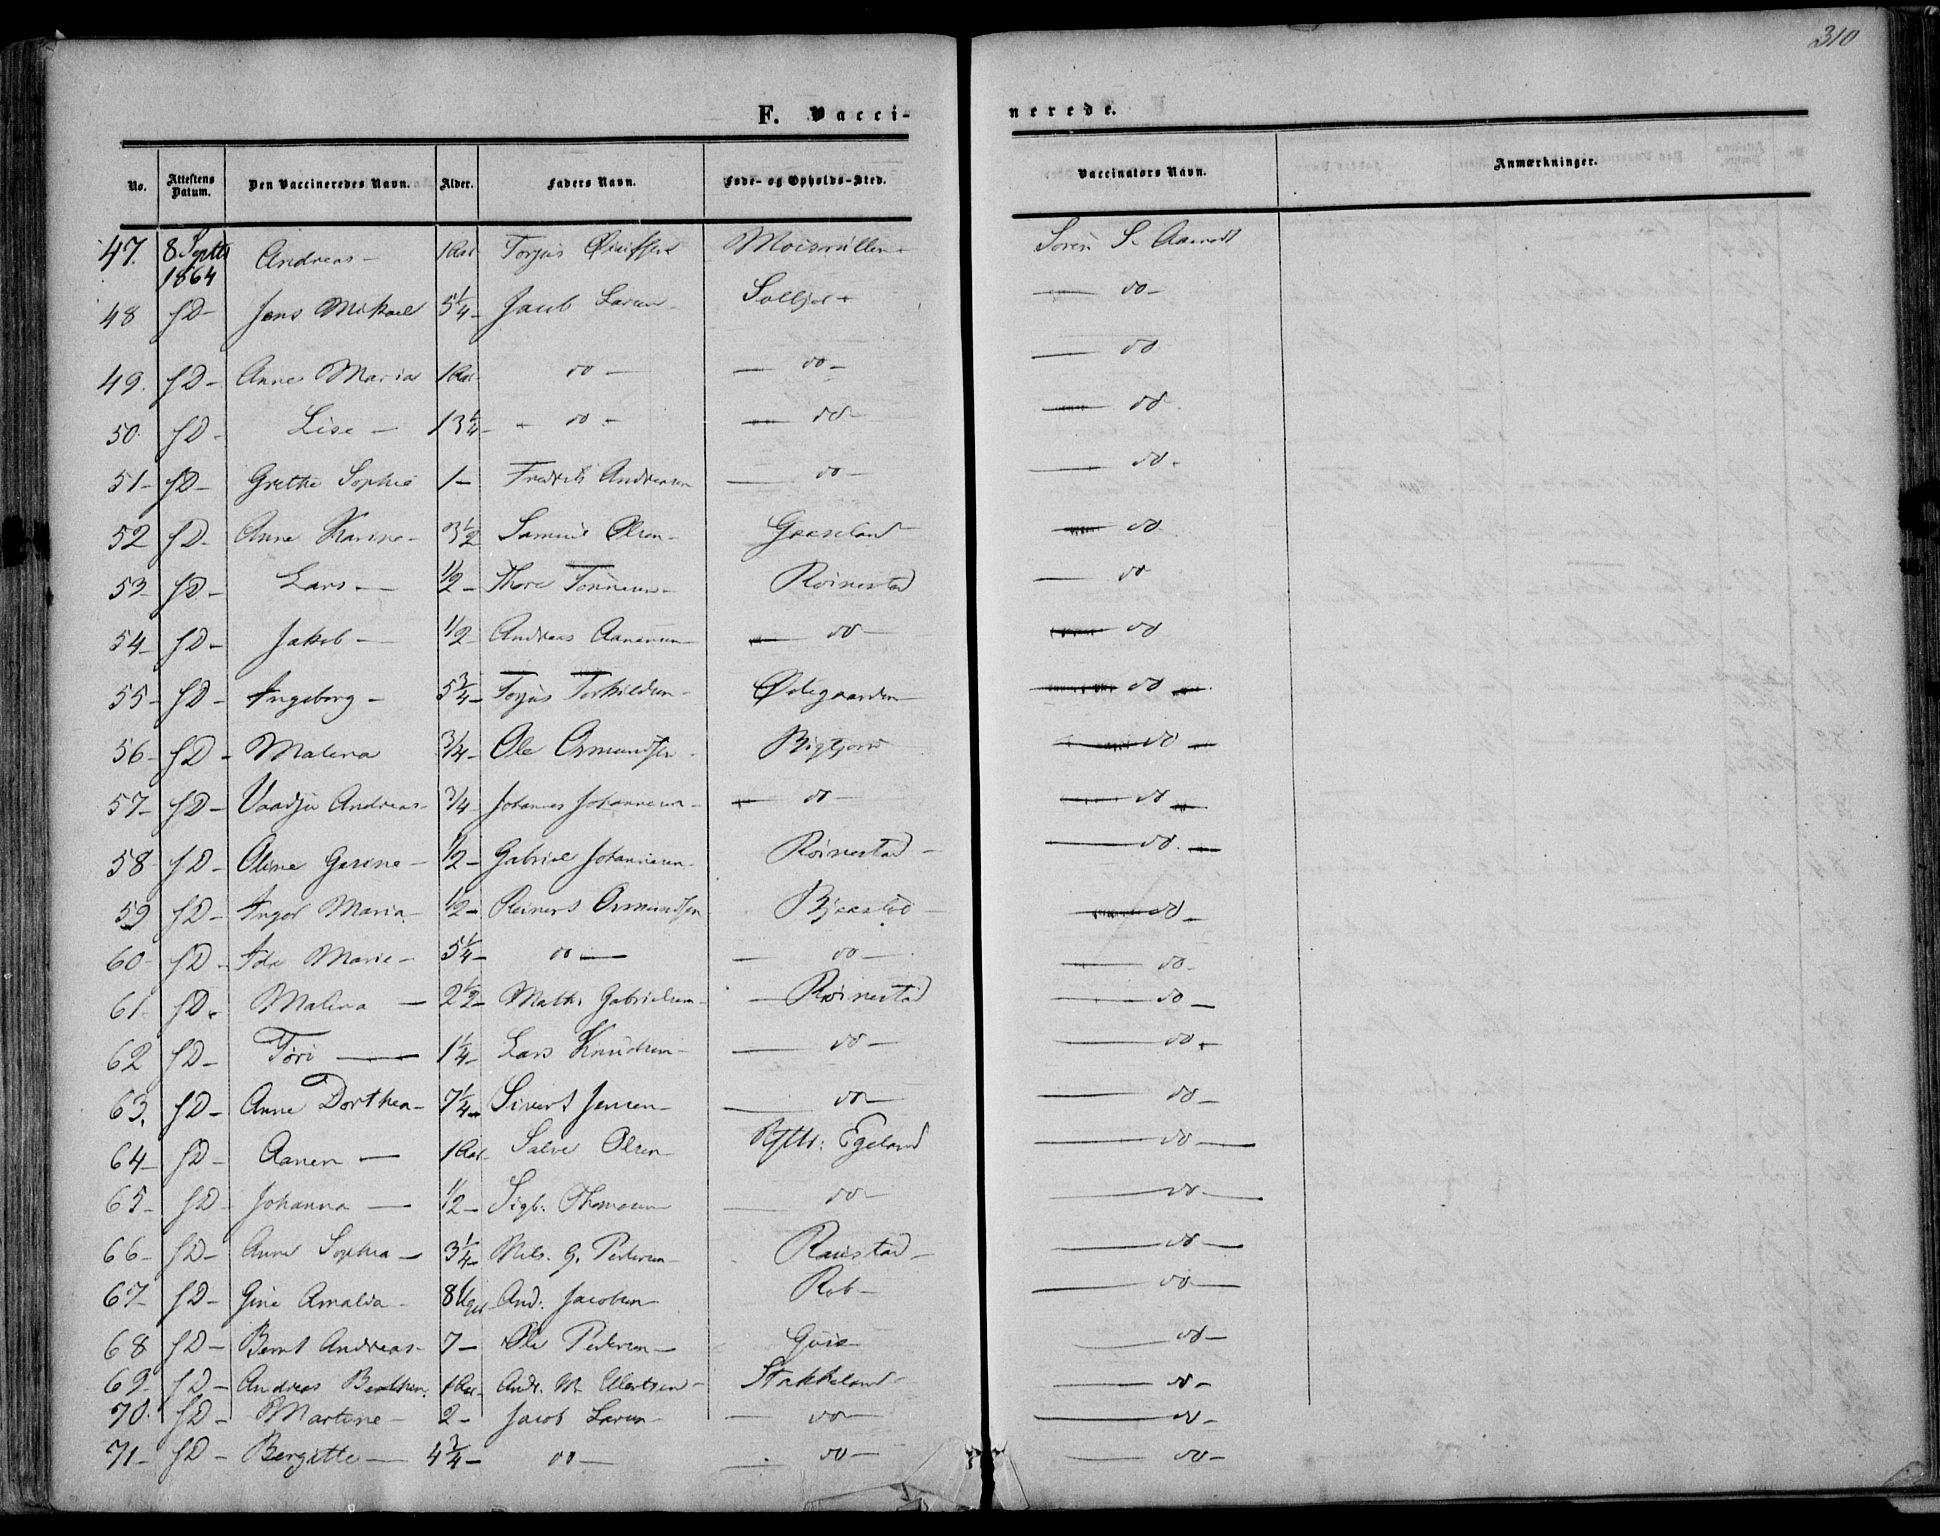 310
F. Vacci-
nerede.
No. Attestens Datum. Den Vaccineredes Navn. Alder. Faders Navn. Føde- og Opholds-Sted. Vaccinators Navn. Anmærkninger.
47. 8 Septb 1864 Andreas - 1 Aar Torjus Moismüllen - Soren S. Aamodt
48 sD- Jens Mikael 5 1/4 - Jacob Larsen - - do -
49. sD- Anne Maria 1 Aar - do - - do - - do
50. sD- Lise - 13 1/4 - - do - - do - - do
51- sD- Grethe Sophie 1- Fredrik Andreasen - do - - do -
52 sD- Anne Karine - 3 1/2 Samuel Olsen - Gaaseland - do
53- sD- Lars - 1/2 - Thore Tønnesen - Roinestad - do
54- sD- Jakob - 1/2 Andreas Aanensen - do - - do
55- sD- Ingeborg - 5 3/4 - Torjus Terkildsen - Ødegaarden - do -
56- sD- Malena 3/4 - Ole Osmundsen - - do -
57- sD- Andreas - 3/4 - Johannes Johannesen - - do - - do -
58- sD- Oline Gesine - 1/2 - Gabriel Johannesen Roinestad - - do -
59 sD- Inger Maria - 1/2 - Reinert Osmundsen - do -
60- sD- Ida Marie - 5 1/4 - do - - do - - do -
61- sD- Malena - 2 1/2 - Math. Gabrielsen - - Roinestad - do -
62 sD- Tori - 1 1/4 - Lars Knudsen - - do - - do -
63. sD- Anne Dorthea - 7 1/4 - Sivert Jensen - - do - - do -
64- sD- Aanen - 1 Aar - Salve Olsen - Egeland - do -
65- sD- Johanna - 1/2 - Sigb. Thomasen - do - - do -
66- sD- Anne Sophia - 3 1/4 - Nils. G. Pedersen - Raustad - - do -
67- sD- Gine Amalia - 8 Uger And. Jacobsen Rob - - do -
68 sD- Bernt Andreas - 7 - Ole Pedersen - - do -
69- sD- Andreas 1 Aar - Andr. M. Stakkeland - - do -
70. sD- Martine - 2 - Jacob Larsen - - do - - do -
71- sD- Bergitte - 4 3/4 - do - - do - - do -